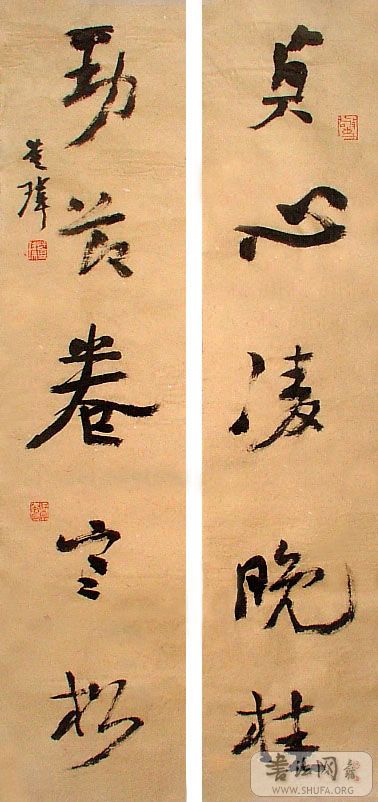 贞心凌晚桂
劲节卷寒松
书法网
WWW.SHUFA.ORG